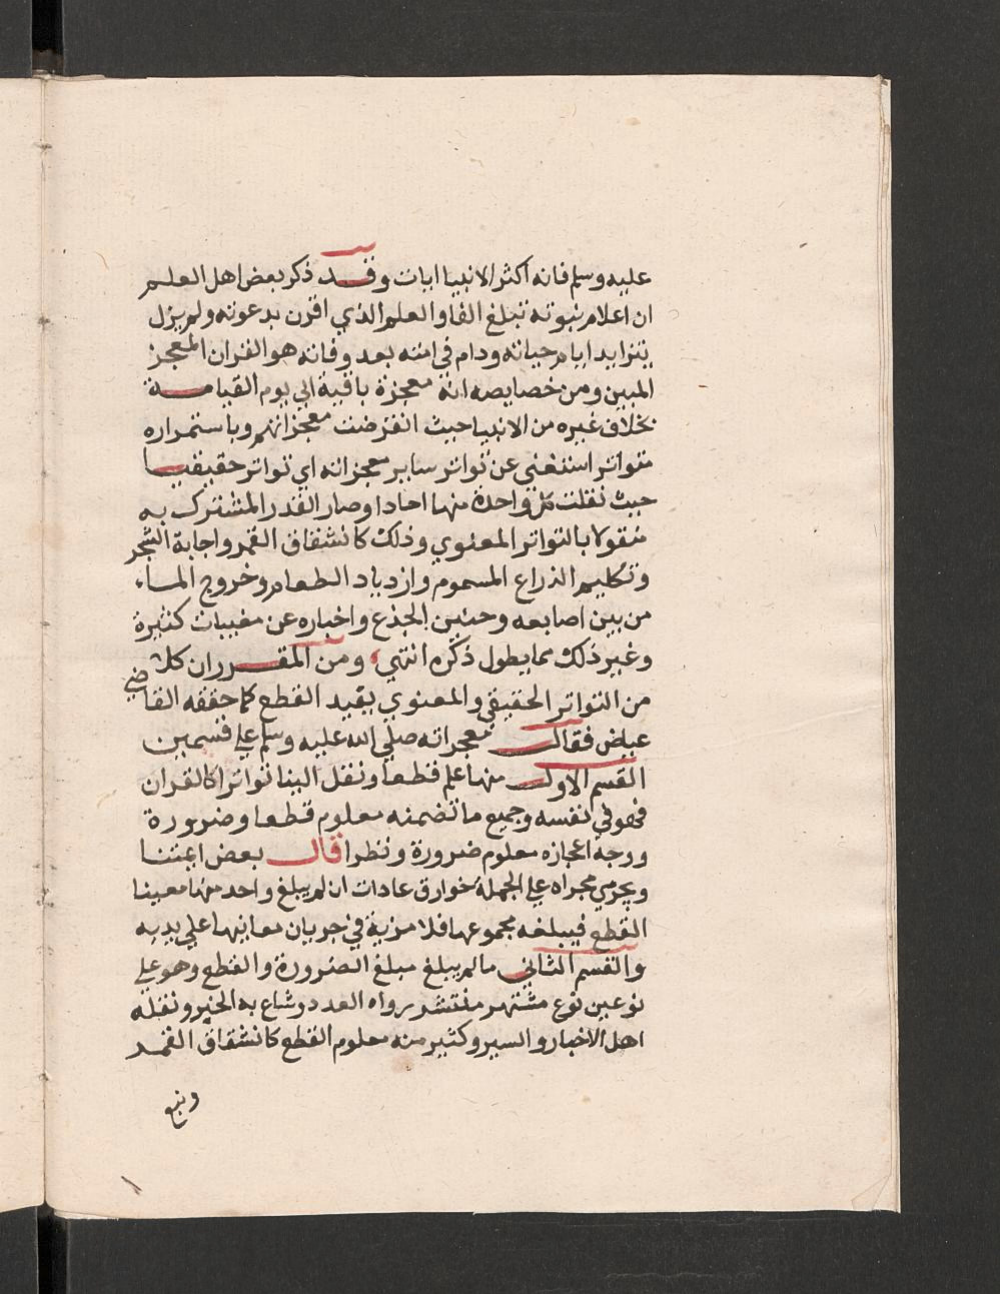 عليه وسلم فانه اكثر الانبيا ايات وقد ذكر بعض اهل العلم
ان اعلام نبوته تبلغ الفا والعلم الذي اقرن بدعوته ولم يزل
يتزايد ايام حياته ودام في امته بعد وفاته هو القران المعجز
المبين ومن خصايصه انه معجزة باقية الي يوم القيامة
بخلاف غيره من الانبيا حيث انقرضت معجزاتهم وباستمراره
متواتر استغني عن تواتر ساير معجزاته اي تواتر حقيقيا
حيث نقلت كل واحدة منها احادا وصار القدر المشترك به
منقولا بالتواتر المعنوي وذلك كانشقاق القمر واجابة الشجر
وتكليم الذراع المسموم وازدياد الطعام وخروج الماء
من بين اصابعه وحنين الجذع واخباره عن مغيبات كثيرة
وغير ذلك مما يطول ذكره انتهي ومن المقرر ان كلا
من التواتر الحقيقي والمعنوي يفيد القطع كما حققه القاضي
عياض فقال معجزاته صلي الله عليه وسلم علي قسمين
القسم الاول منها علم قطعا ونقل الينا تواترا كالقران
فهو في نفسه وجميع ما تضمنه معلوم قطعا وضرورة
ووجه اعجازه معلوم ضرورة ونظرا قال بعض ايمتنا
ويجري مجراه علي الجملة خوارق عادات ان لم يبلغ واحد منها معينا
القطع فيبلغه مجموعها فلا مزية في جريان معاينها علي يديه
والقسم الثاني ما لم يبلغ مبلغ الضرورة والقطع وهو علي
نوعين نوع مشتهر منتشر رواه العدد وشاع به الخبر ونقله
اهل الاخبار والسير وكثير منه معلوم القطع كانشقاق القمر
ونبع